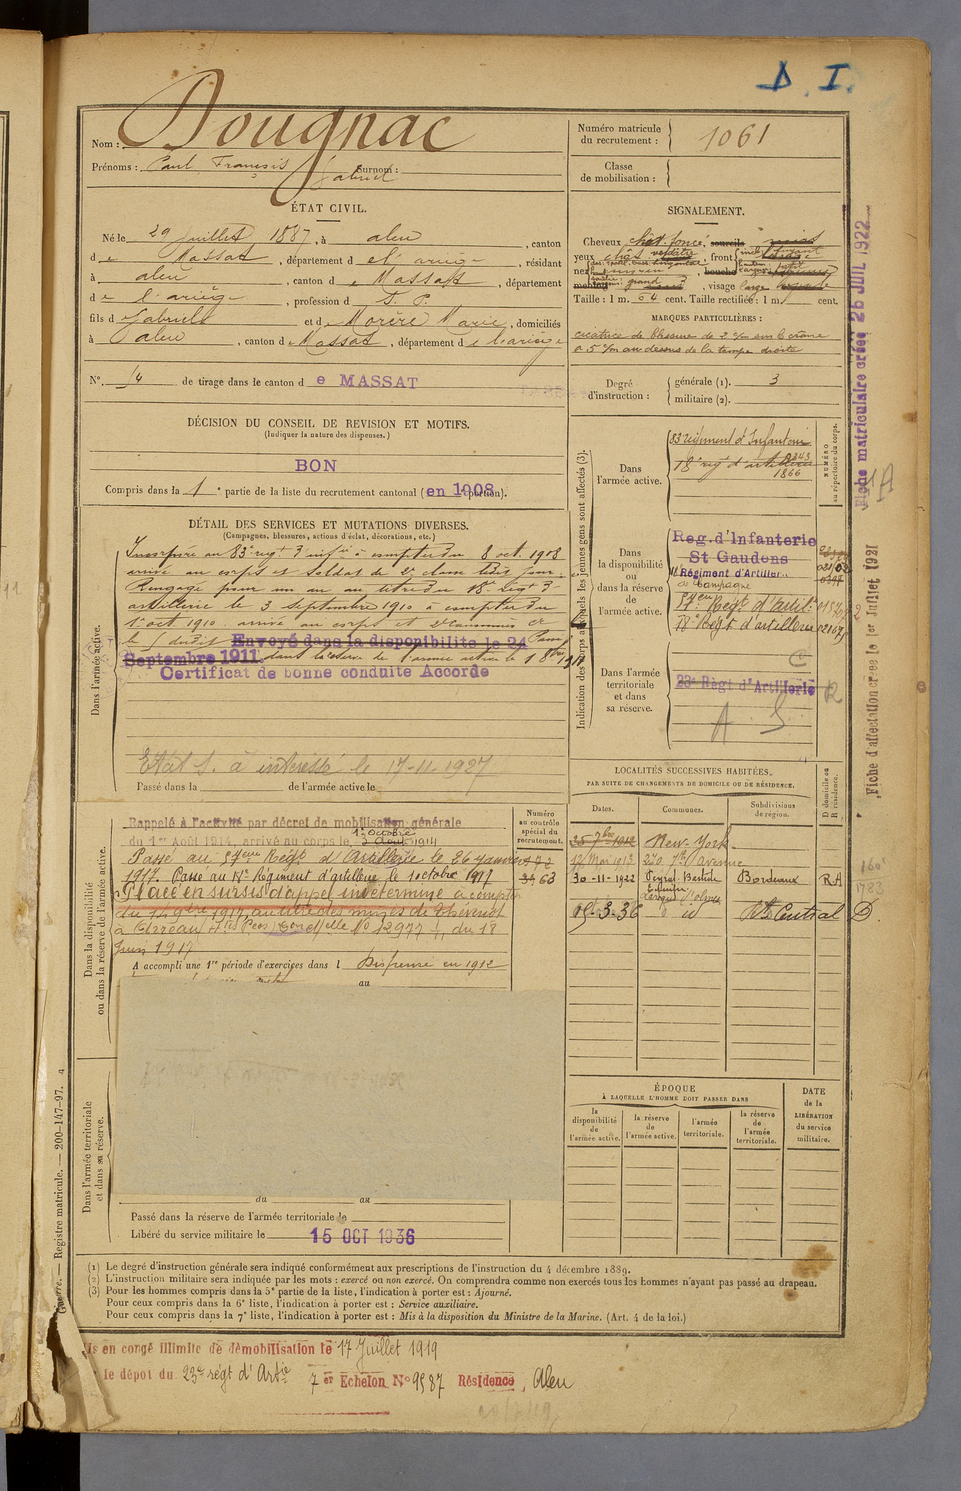 D. I.
Nom : Dougnac
Prénoms : Paul François Gabriel Surnom :
Numéro matricule du recrutement : 1061
Classe de mobilisation :
ÉTAT CIVIL.
Né le 29 juillet 1887, à aleu, canton
de Massat, département de l'ariège, résidant
à aleu, canton de Massat, département
de l'ariège, profession d S. P.
fils de Gabriel et de Morère Marie, domiciliés
à aleu, canton de Massat, département de l'ariège
N° 14 de tirage dans le canton de MASSAT
SIGNALEMENT.
Cheveux chât. foncé, sourcils
yeux, front
nez, bouche
menton, visage large
Taille : 1 m. 64 cent. Taille rectifiée : 1 m. cent.
MARQUES PARTICULIÈRES :
cicatrice de blessure de 2 c/m sur le crâne
à 5 c/m au dessus de la tempe droite
Degré d'instruction : générale (1). 3
militaire (2).
DÉCISION DU CONSEIL DE REVISION ET MOTIFS.
(Indiquer la nature des dispenses.)
BON
Compris dans la 1e partie de la liste du recrutement cantonal (en 1908).
DÉTAIL DES SERVICES ET MUTATIONS DIVERSES.
(Campagnes, blessures, actions d'éclat, décorations, etc.)
Dans l'armée active.
Incorporé au 83e régt d'infie à compter du 8 oct. 1908
arrivé au corps et soldat de 2e classe ledit jour.
Rengagé pour un an au titre du 18e régt d'
artillerie le 3 septembre 1910 à compter du
1er oct 1910. arrivé au corps et 2e canonnier
le 1er dudit Envoyé dans la disponibilité le 24
Septembre 1911. dans la réserve de l'armée active le 1 8bre
Certificat de bonne conduite Accordé
Etat S. à intéressé le 17-11-1927
Passé dans la de l'armée active le
Indication des corps auxquels les jeunes gens sont affectés (3).
NUMÉRO au répertoire du corps.
Dans l'armée active.
83 régiment d'Infanterie
18e régt d'artillerie
1866
Dans la disponibilité ou dans la réserve de l'armée active.
Reg. d'Infanterie
St Gaudens
Régiment d'Artillerie
de Campagne
57e Regt d'Artillie
18e Regt d'artillerie
Dans l'armée territoriale et dans sa réserve.
23e Régt d'Artillerie
A S
Fiche matriculaire créée 26 JUIL 1922
Fiche d'affectation créée le 1er Juillet 1921
LOCALITÉS SUCCESSIVES HABITÉES,
PAR SUITE DE CHANGEMENTS DE DOMICILE OU DE RÉSIDENCE.
Dates. Communes. Subdivisions de région. D domicile ou R résidence.
25 7bre 1912 New-York
12 Mai 1913 370 7th avenue
30-11-1922 Bordeaux R A
15-3-36 id Central D.
Dans la disponibilité ou dans la réserve de l'armée active.
Numéro au contrôle spécial du recrutement.
Rappelé à l'activité par décret de mobilisation générale
du 1er Août 1914, arrivé au corps le 1er octobre 1914
Passé au 57eme Régt d'Artillerie le 26 janvier
1917. Passé au 14e Régiment d'artillerie le 1 octobre 1917
Placé en sursis d'appel indéterminé à compter
du 14 9bre 1917, au titre des mines de
à Arreau Htes Pyr. N° 12977 du 18
Juin 1917
A accompli une 1re période d'exercices dans l Dispensé en 1912
au
Dans l'armée territoriale et dans sa réserve.
du au
Passé dans la réserve de l'armée territoriale le
Libéré du service militaire le 15 OCT 1936
ÉPOQUE
À LAQUELLE L'HOMME DOIT PASSER DANS
la disponibilité de l'armée active. la réserve de l'armée active. l'armée territoriale. la réserve de l'armée territoriale.
DATE de la LIBÉRATION du service militaire.
(1) Le degré d'instruction générale sera indiqué conformément aux prescriptions de l'instruction du 4 décembre 1889.
(2) L'instruction militaire sera indiquée par les mots : exercé ou non exercé. On comprendra comme non exercés tous les hommes n'ayant pas passé au drapeau.
(3) Pour les hommes compris dans la 5e partie de la liste, l'indication à porter est : Ajourné.
Pour ceux compris dans la 6e liste, l'indication à porter est : Service auxiliaire.
Pour ceux compris dans la 7e liste, l'indication à porter est : Mis à la disposition du Ministre de la Marine. (Art. 4 de la loi.)
Guerre. — Registre matricule. — 200-147-97.
is en congé illimité de démobilisation le 17 Juillet 1919
le dépôt du 23e régt d'Artie 7 er Echelon N° 9587 Résidence, Aleu